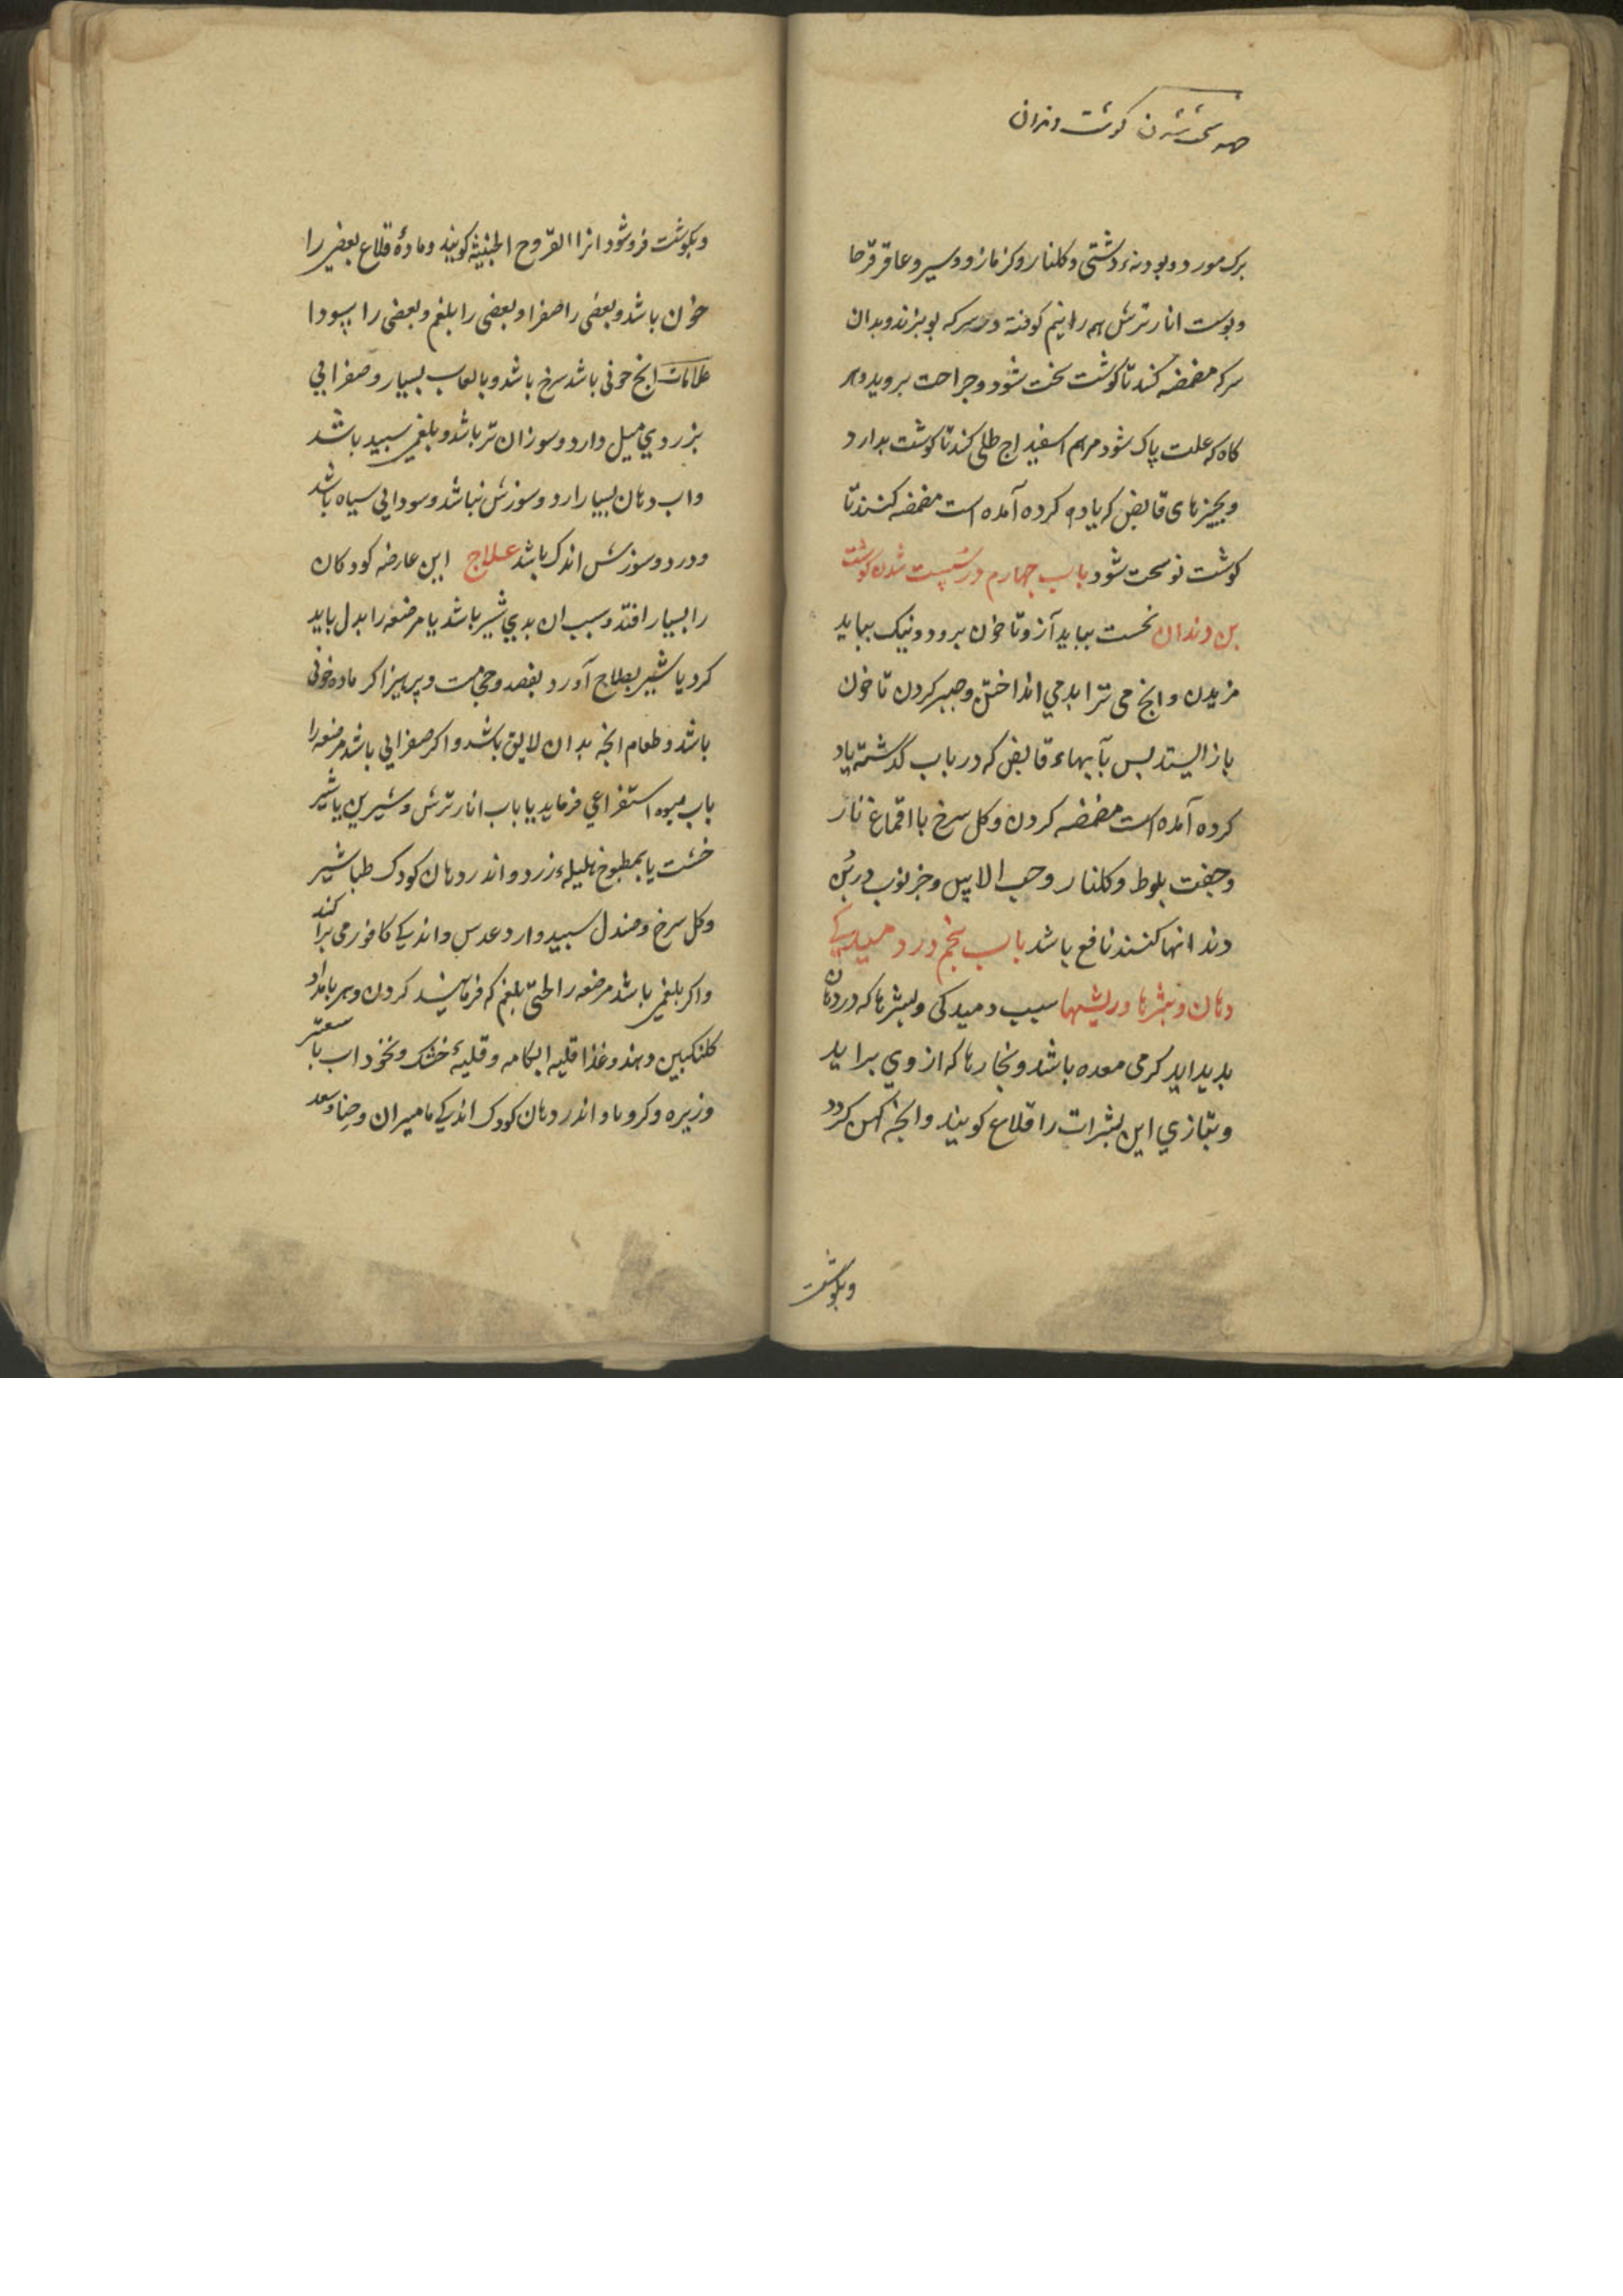 جهه سخت شدن گوشت دندان
برک مورد و پودنهٔ دشتی و کلنار و کزمازو و سیر و عاقرقرحا
و پوست انار ترش همه را نیم کوفته در سرکه بپزند و بدان
سرکه مضمضه کند تا گوشت سخت شود و جراحت بروید و هر
کاه که علت پاک شود مرهم اسفیداج طلی کند تا کوشت بدارد
و بچیزهای قابض که یاد کرده آمده است مضمضه کنند تا
کوشت نو سخت شود باب چهارم در سست شدن کوشت
بن دندان نخست بباید آزود تا خون برود و نیک بباید
مزیدن و انچ می ترابد می انداختن و صبر کردن تا خون
باز ایستد پس بآبهاء قابض که در باب کذشته یاد
کرده آمده است مضمضه کردن و کل سرخ با اقماع نار
و جفت بلوط و کلنار و حب الاس و خرنوب در بُن
دندانها کنند نافع باشد باب پنجم در دمیدکی
دهان و بثرها و ریشها سبب دمیدکی و بثرها که در دهان
پدید اید کرمی معده باشد و بخارها که از وی براید
و بتازی این بثرات را قلاع کویند و انچه کهن کردد
وبکوشت
وبکوشت فرو شود انرا القروح الخبیثه کویند و مادهٔ قلاع بعضی را
خون باشد و بعضی را صفرا و بعضی را بلغم و بعضی را سودا
علامات انچ خونی باشد سرخ باشد و با لعاب بسیار و صفرایی
بزردی میل دارد و سوزان تر باشد و بلغمی سپید باشد
و اب دهان بسیار ارد و سوزش نباشد و سودایی سیاه باشد
و درد و سوزش اندک باشد علاج این عارضه کودکان
را بسیار افتد و سبب ان بدی شیر باشد یا مرضعه را بدل باید
کرد یا شیر بصلاح آورد بفصد و حجامت و پرهیز اکر ماده خونی
باشد و طعام انچه بدان لایق باشد و اکر صفرایی باشد مرضعه را
باب میوه استفراغی فرماید یا باب انار ترش و شیرین یا شیر
خشت یا بمطبوخ هلیلهٔ زرد و اندر دهان کودک طباشیر
و کل سرخ و صندل سپید و ارد عدس و اندکی کافور می پراکند
و اکر بلغمی باشد مرضعه را بلغم که فرمایند کردن و هر بامداد
کلنکبین دهند و غذا قلیه ابکامه و قلیهٔ خشک و نخوداب با سعتر
و زیره و کرویا و اندر دهان کودک اندکی مامیران و حنا و سعد